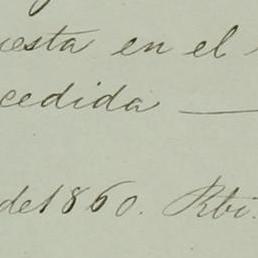 uesta en el
cedida —
de 1860. Rbi